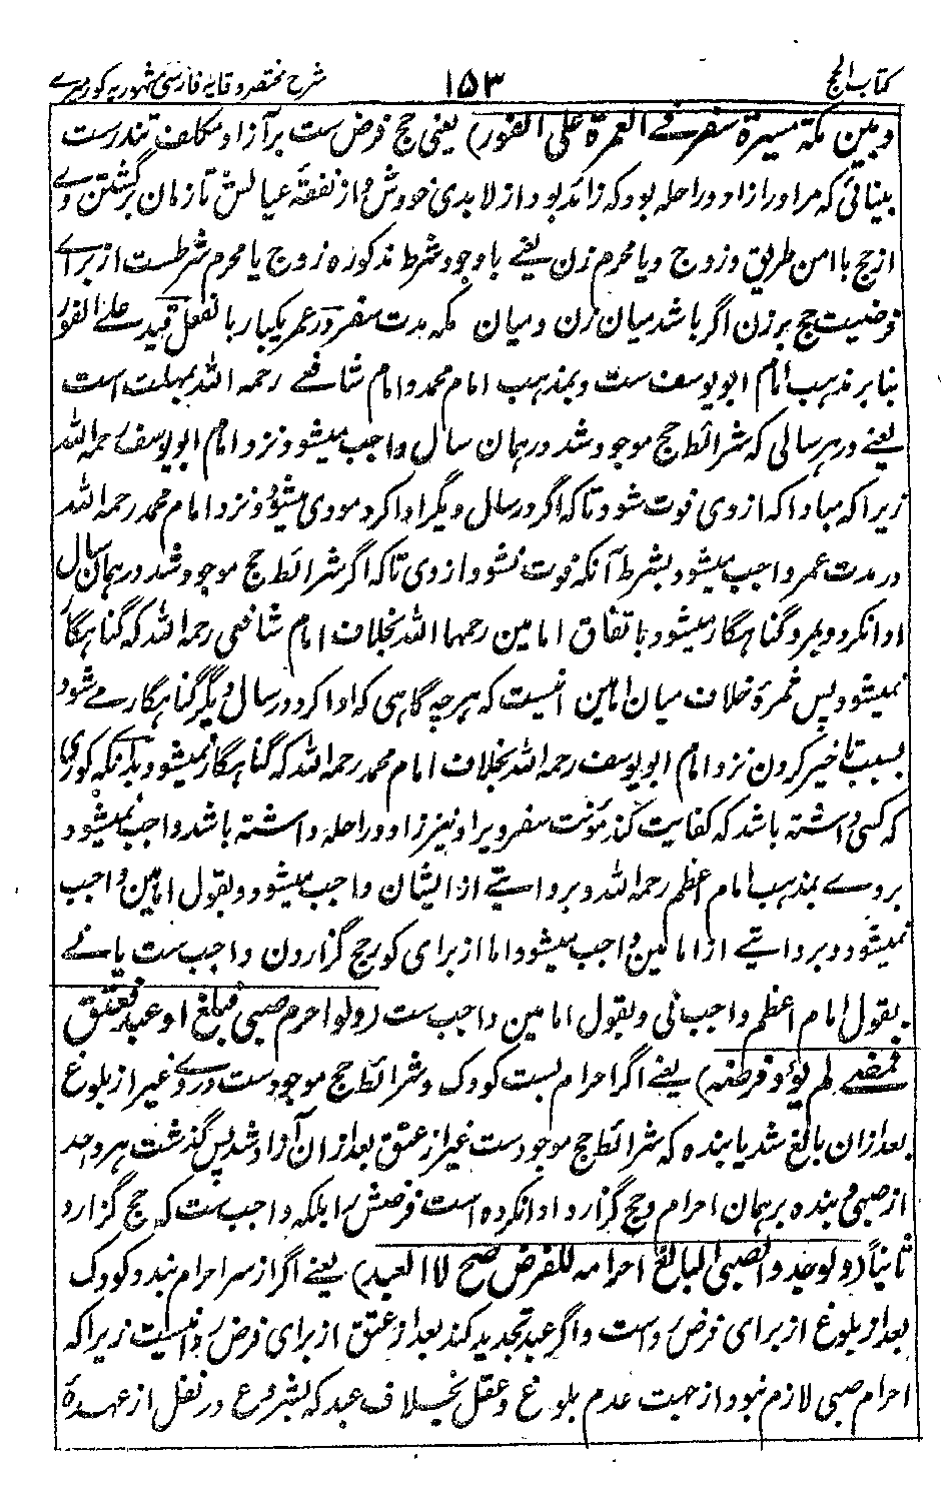 کتاب الحج ۱۵۳ شرح مختصر وقایه فارسی مشهور به کور میرے
و بین مکة مسیرة سفر فے العمرة علی الفور) یعنی حج فرض ست بر آزاد و مکلف تندرست
بینائی که مر او را زاد و راحله بود که زائد بود از لابدی خودش و از نفقهٔ عیالش تا زمان برگشتن وے
از حج با امن طریق و زوج و یا محرم زن یعنے باوجود شرط مذکوره زوج یا محرم شرطست از براے
فرضیت حج بر زن اگر باشد میان زن و میان مکه مدت سفر و در عمر یکبار بالفعل قید علے الفور
بنابر مذهب امام ابو یوسف ست و بمذهب امام محمد و امام شافعے رحمه الله بمهلت است
یعنے در هر سالی که شرائط حج موجود شد در همان سال واجب میشود نزد امام ابو یوسف رحمه الله
زیرا که مبادا که از وی فوت شود تا که اگر در سال دیگر ادا کرد مودی میشود و نزد امام محمد رحمه الله
در مدت عمر واجب میشود بشرط آنکه فوت نشود از وی تا که اگر شرائط حج موجود شد در همان سال
ادا نکرد و بمرد گناهگار میشود باتفاق امامین رحمهما الله بخلاف امام شافعی رحمه الله که گناهگار
نمیشود پس ثمرهٔ خلاف میان امامین انیست که هر چه گاهی که ادا کرد در سال دیگر گناهگار مے شود
بسبب تاخیر کردن نزد امام ابو یوسف رحمه الله بخلاف امام محمد رحمه الله که گناهگار نمیشود بدانکه کوری
که کسی داشته باشد که کفایت کند مؤنت سفر ویرا و نیز زاد و راحله داشته باشد واجب نمیشود
بر وے بمذهب امام اعظم رحمه الله و بروایتے از ایشان واجب میشود و بقول امامین واجب
نمیشود و بروایتے از امامین واجب میشود اما از برای کور حج گزاردن واجب ست یا نے
بقول امام اعظم واجب نی و بقول امامین واجب ست (ولو احرم صبی فبلغ او عبد فعتق
فمضے لم یؤد فرضه) یعنے اگر احرام بست کودک و شرائط حج موجودست در وے غیر از بلوغ
بعد ازان بالغ شد یا بنده که شرائط حج موجودست غیر از عتق بعد ازان آزاد شد پس گذشت هر واحد
از صبی و بنده بر همان احرام و حج گزارد ادا نکرده است فرضش را بلکه واجب ست که حج گزارد
ثانیاً (ولو جدد الصبی البالغ احرامه للفرض صح لا العبد) یعنے اگر از سر احرام بندد کودک
بعد از بلوغ از برای فرض رواست و اگر عبد تجدید کند بعد از عتق از برای فرض روا نیست زیرا که
احرام صبی لازم نبود از جهت عدم بلوغ و عقل بخلاف عبد که بشروع در نفل از عهدهٔ